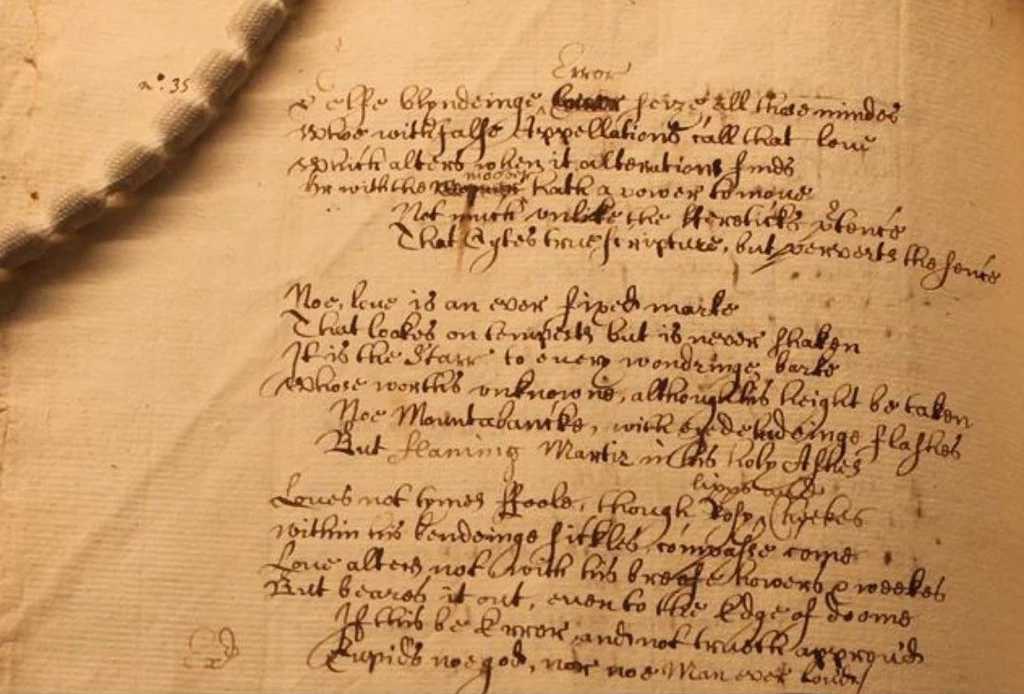 nº. 35
Error
Selfe blyndeinge seize all those mindes
Whoe with false Appellations call that love
Which alters when it alterations finds
moover
Or with the hath a power to move
Not much unlike the Hereticks ptence
That Cytes true scripture, but perverts the sence
Noe, love is an ever fixed marke
That lookes on tempests but is never shaken
It is the Starr to every wondringe barke
Whose worth's unknowne, although his height be taken
Noe Mountabancke, with eyedeludeinge flashes
But flaming Martir in his holy Ashes
lipps and
Loves not tymes ffoole, though Rosy Cheekes
within his bendeinge sickles compasse come
Love alters not with his breife howers & weekes
But beares it out, even to the Edge of doome
If this be Error and not trueth approv'd
Cupids noe god, nor noe Man ever lov'd